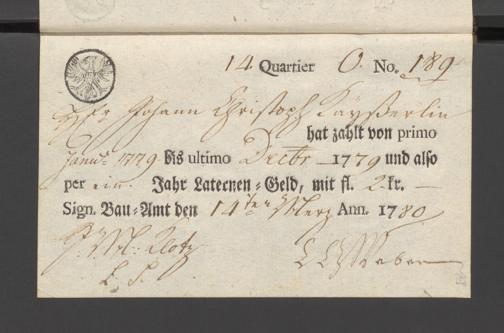 14 Quartier O. No. 189
Hr. Johann Christoph Käyßerlin
hat zahlt von primo
Janu: 1779 bis ultimo Decbr 1779 und also
per ein Jahr Latecnen-Geld, mit fl. 2 kr. —
Sign. Bau-Amt den 14ten Merz Ann. 1780